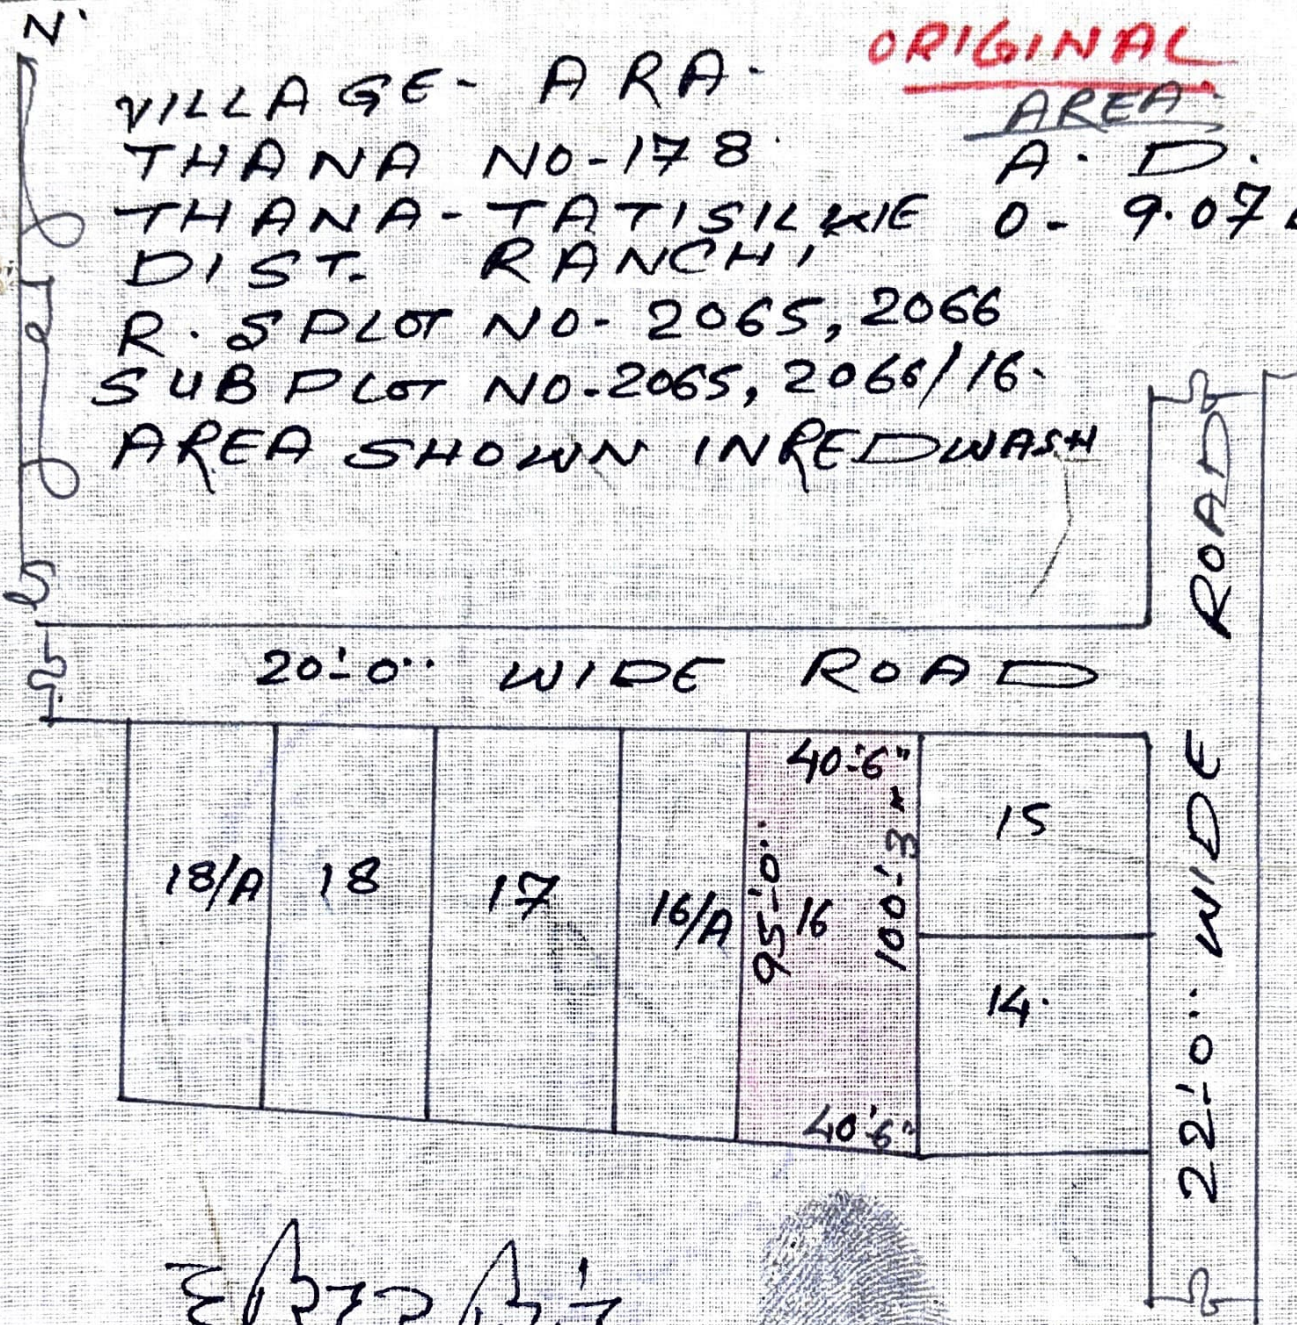 N
ORIGINAL
VILLAGE- ARA.
AREA
THANA NO-178
A. D.
THANA-TATISILWIE
0- 9.07
DIST. RANCHI
R.S PLOT NO- 2065, 2066
SUB PLOT NO.-2065, 2066/16.
AREA SHOWN IN RED WASH
S
20'-0" WIDE ROAD
22'-0" WIDE ROAD
18/A
18
17
16/A
95'-0"
16
40'-6"
100'-3"
40'-6"
15
14.